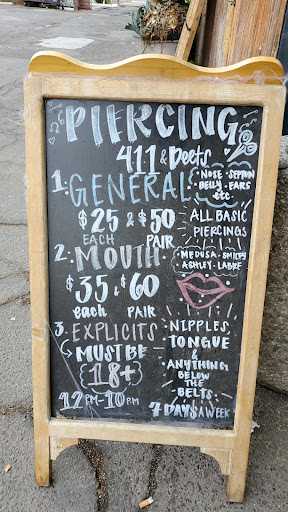 PIERCING
411 & Deets
1. GENERAL
NOSE • SEPTUM
BELLY • EARS
etc.
$25 & $50
EACH PAIR
ALL BASIC
PIERCINGS
2. MOUTH
• MEDUSA • SMILEY
• ASHLEY • LABRET
$35 & $60
each PAIR
3. EXPLICITS
MUST BE
18+
NIPPLES,
TONGUE
&
ANYTHING
BELOW
THE
BELTS
12PM-10PM
7 DAYS A WEEK